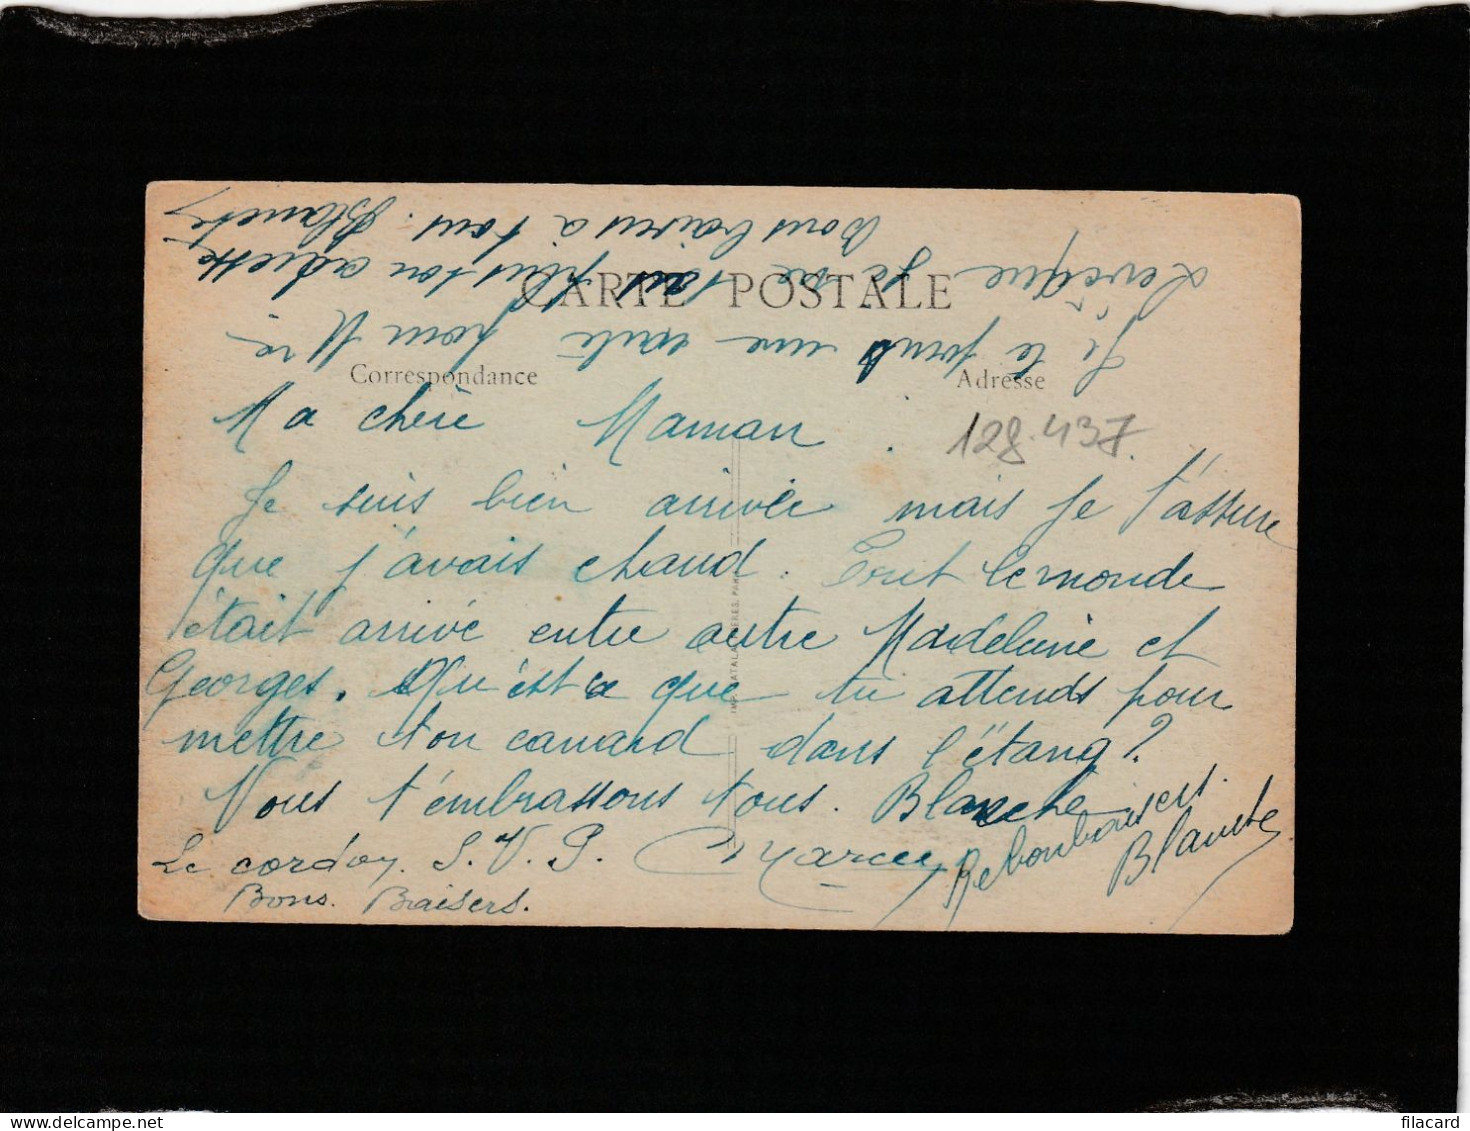 Je te joins une carte pour Mre
Levêque je ne sais plus son adresse
Bons baisers à tous. Blanche
CARTE POSTALE
Correspondance
Adresse
128.437
Ma chère Maman.
Je suis bien arrivée mais je t'assure
que j'avais chaud. Tout le monde
était arrivé entre autre Madeleine et
Georges. Qu'est ce que tu attends pour
mettre ton canard dans l'étang?
Nous t'embrassons tous. Blanche
Le cordoy. S.V.P.
Bons. Baisers.
Marcel
Rebonbaisers.
Blanche
filacard.com